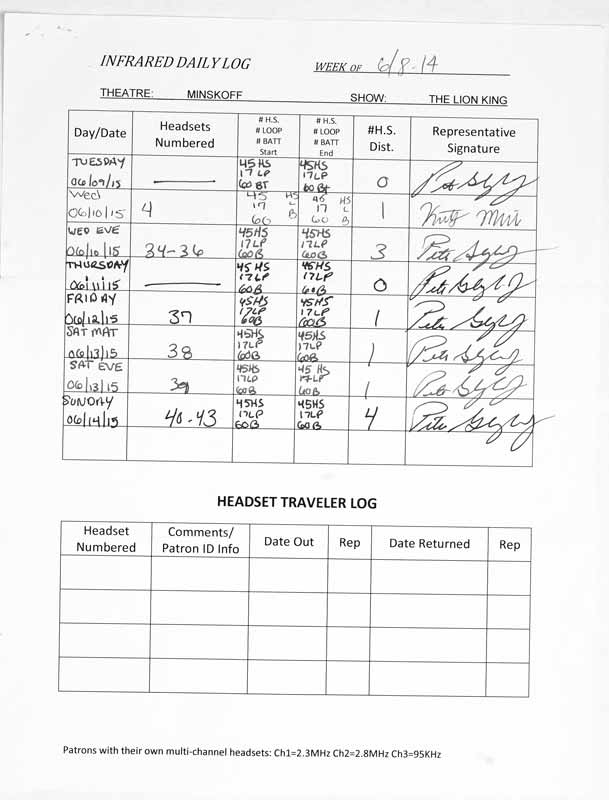 INFRARED DAILY LOG WEEK OF 6/8-14
THEATRE: MINSKOFF SHOW: THE LION KING
Day/Date Headsets Numbered # H.S. # LOOP # BATT Start # H.S. # LOOP # BATT End #H.S. Dist. Representative Signature
TUESDAY 06/09/15 — 45HS 17LP 60BT 45HS 17LP 60Bt 0
Wed 06/10/15 4 45 HS 17 L 60 B 45 HS 17 L 60 B 1
WED EVE 06/10/15 34-36 45HS 17LP 60B 45HS 17LP 60B 3
THURSDAY 06/11/15 — 45HS 17LP 60B 45HS 17LP 60B 0
FRIDAY 06/12/15 37 45HS 17LP 60B 45HS 17LP 60B 1
SAT MAT 06/13/15 38 45HS 17LP 60B 45HS 17LP 60B 1
SAT EVE 06/13/15 39 45HS 17LP 60B 45HS 17LP 60B 1
SUNDAY 06/14/15 40-43 45HS 17LP 60B 45HS 17LP 60B 4
HEADSET TRAVELER LOG
Headset Numbered Comments/ Patron ID Info Date Out Rep Date Returned Rep
Patrons with their own multi-channel headsets: Ch1=2.3MHz Ch2=2.8MHz Ch3=95KHz